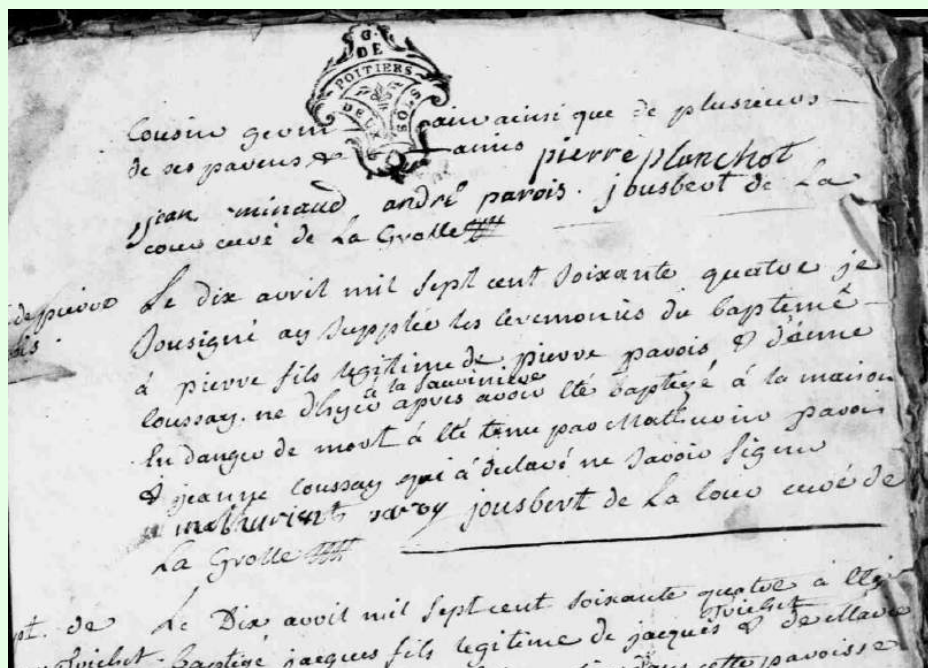 G. DE
POITIERS
DEUX SOLS
Cousin germ ain ainsi que de plusieurs
de ses parens & amis pierre planchot
jean minaud andré parois. jousbert de La
cour curé de La Grolle
de pierre Le dix avril mil sept cent soixante quatre je
Sousigné ay supplée les ceremonies du baptême
à pierre fils legitime de pierre parois & d'enne
à la sauvinière
loussay. ne d'hyer apres avoir été baptisé à la maison
En danger de mort à été tenu par Mathurin parois
& jeanne loussay qui à declaré ne savoir signer
mathurient jousbert de La Cour curé de
La Grolle
pt. de Le Dix avril mil sept cent soixante quatre à été
Baptisé jacques fils legitime de jacques & de
dans cette paroisse